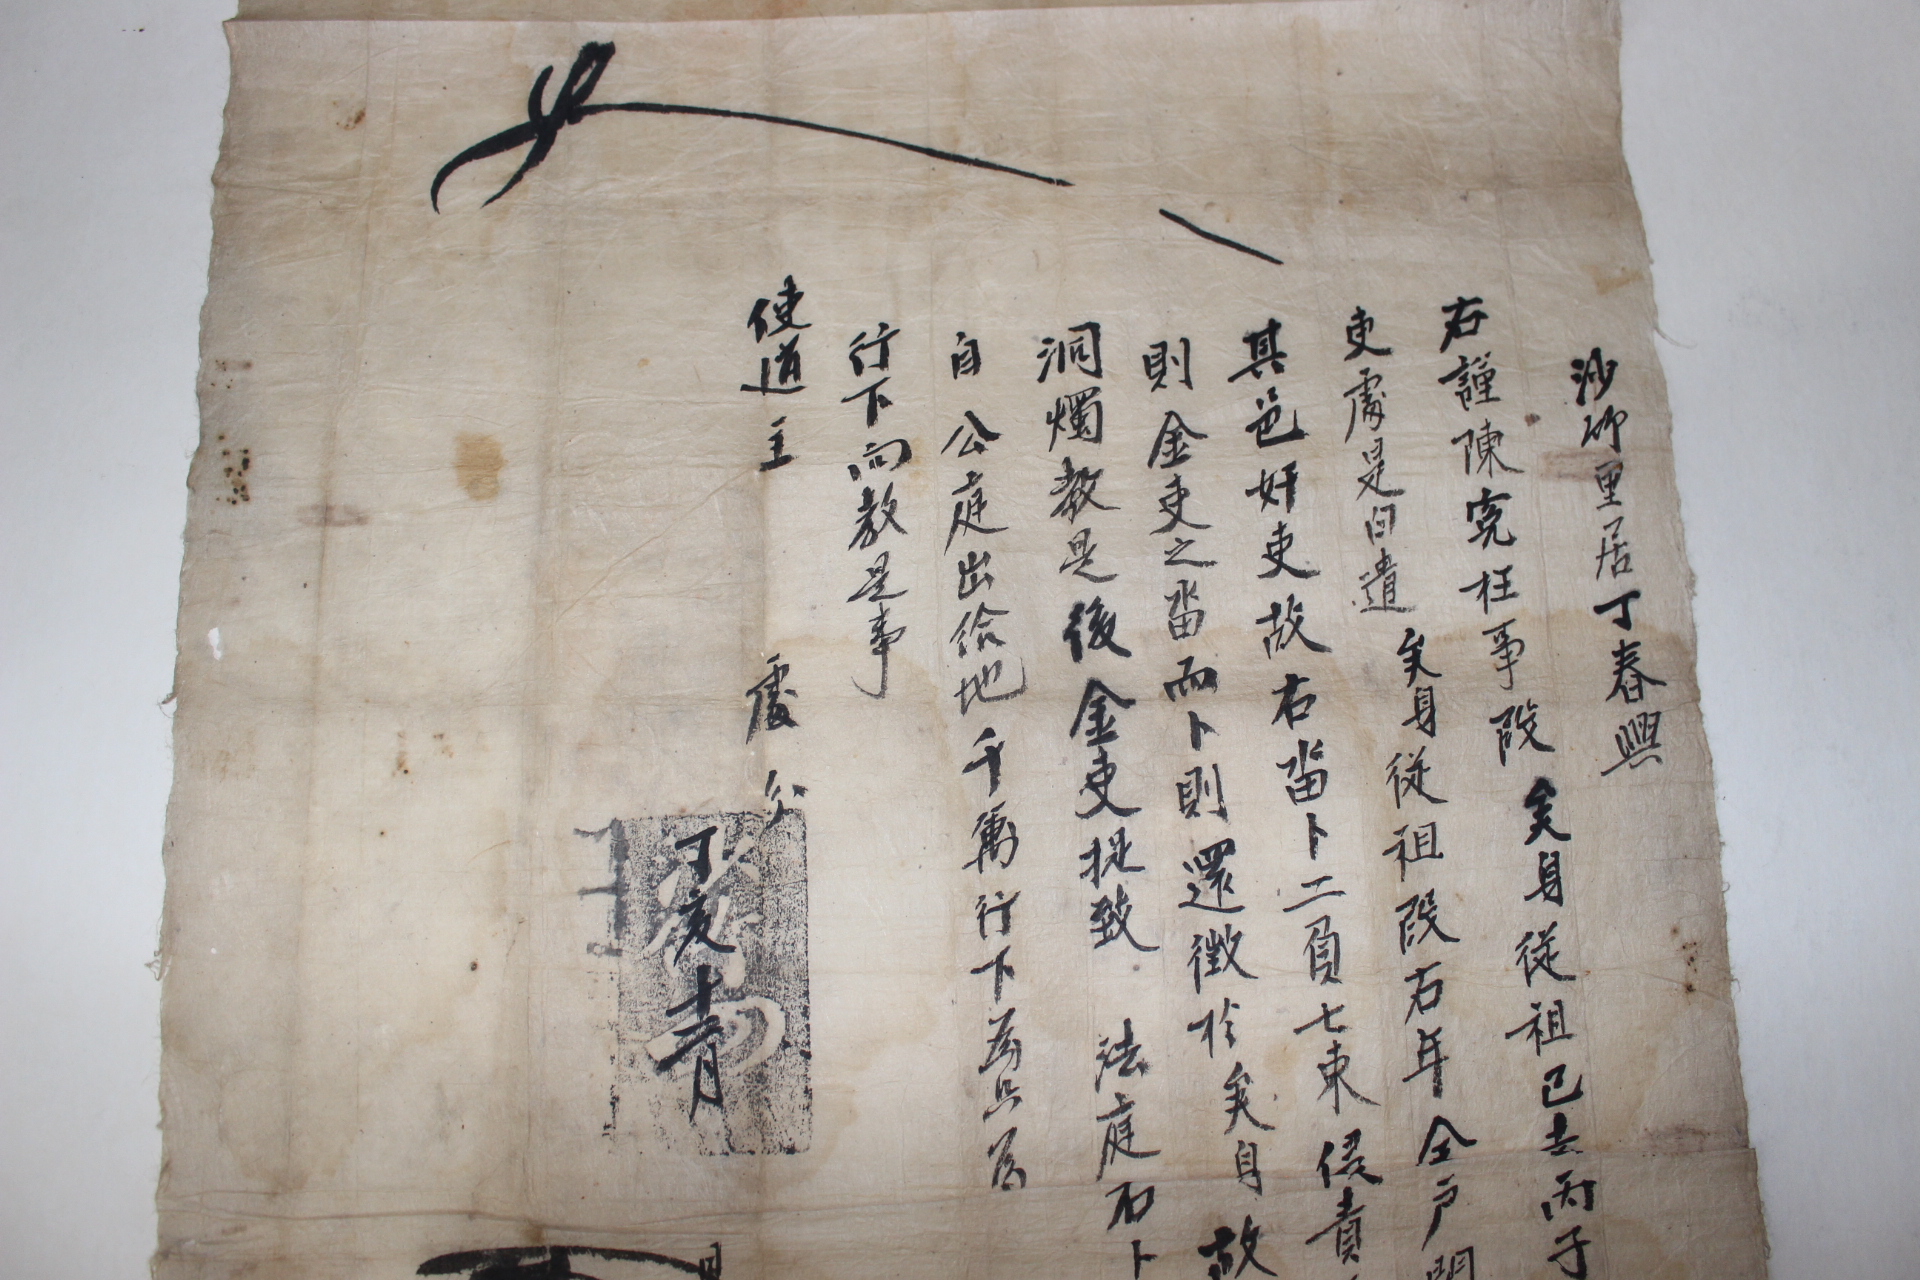 沙 里居丁春興
右謹陳寃枉事段矣身從祖已去丙子
吏處是白遣矣身從祖段右年全戶
其邑奸吏故右畓卜二負七束侵責
則金吏之畓而卜則還徵於矣身故
洞燭敎是後金吏捉致 法庭右卜
自 公庭出給地千萬行下爲只爲
行下向敎是事
使道主 處分
丁亥十二月